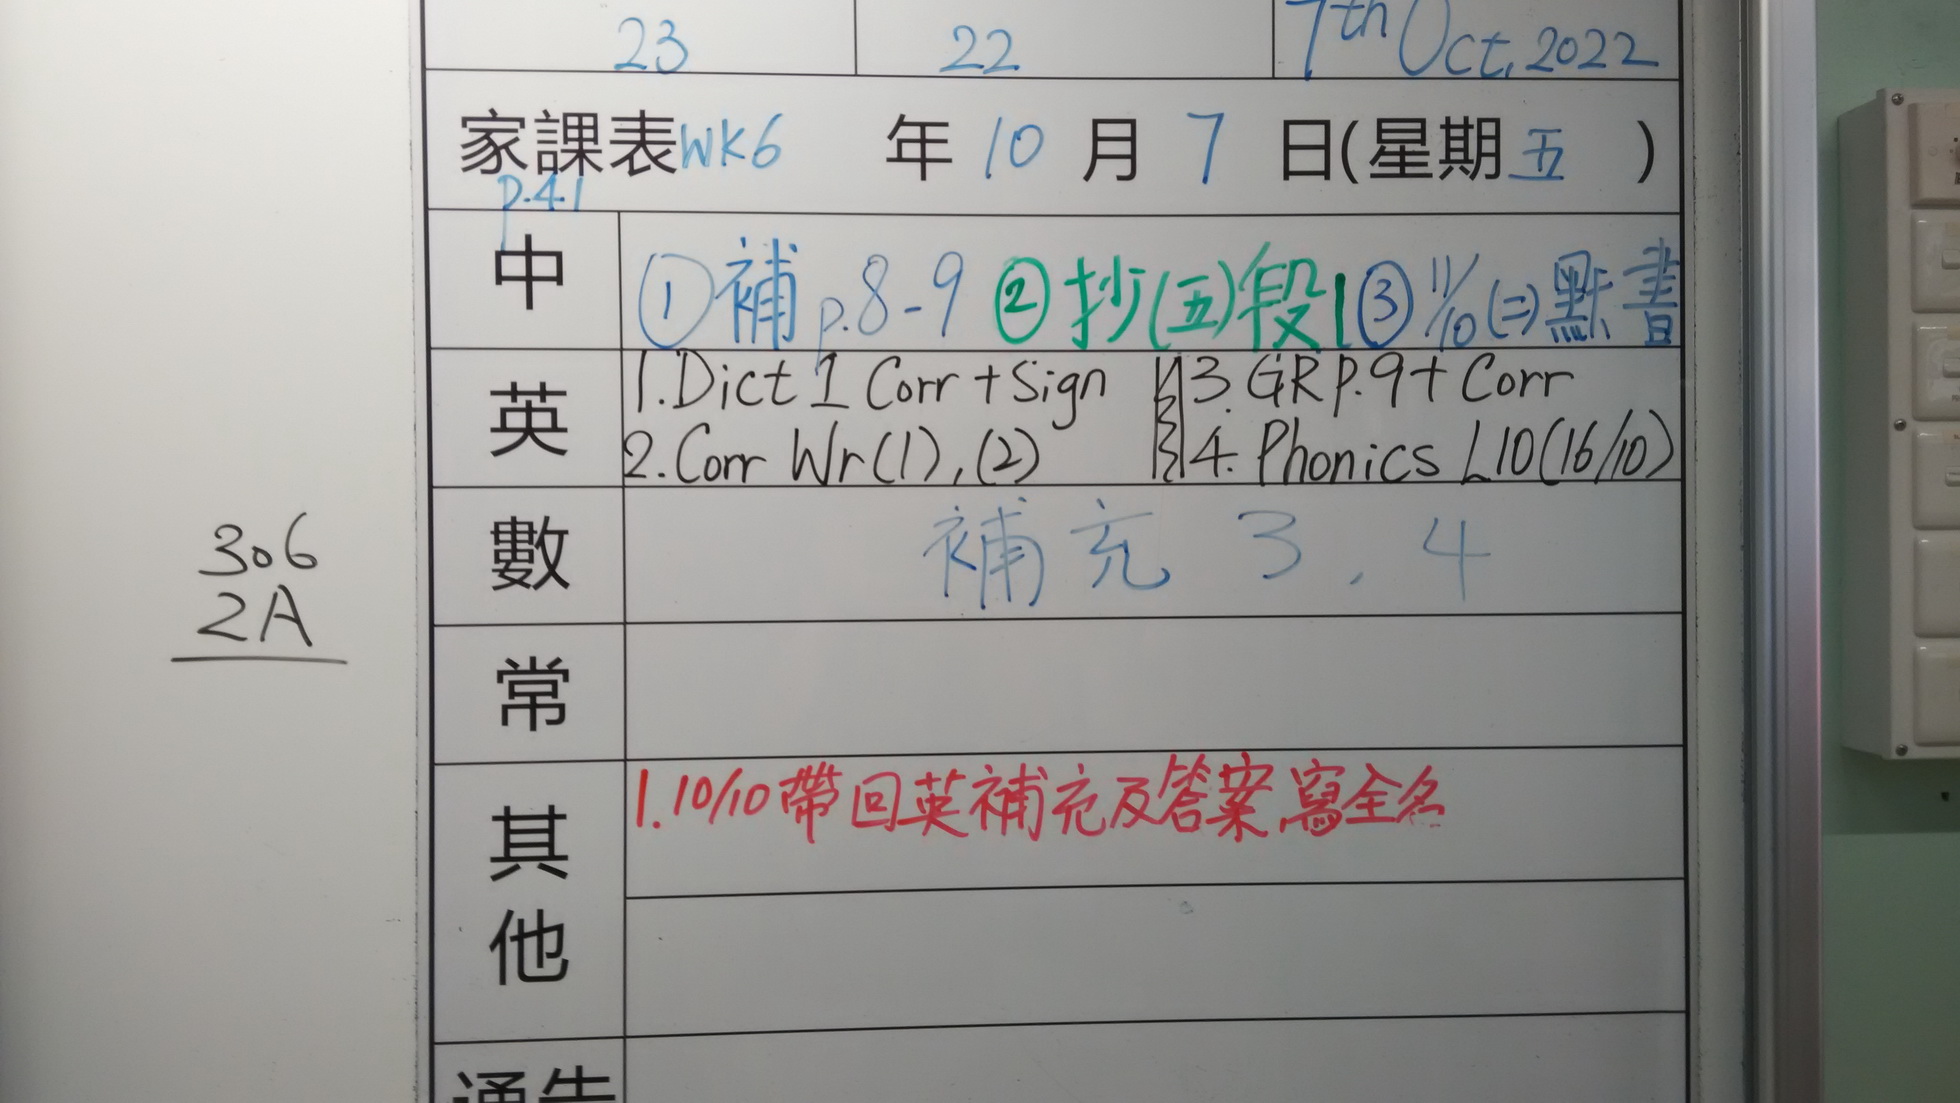 23 22 7th Oct, 2022
家課表 WK6 年 10 月 7 日(星期五)
p.41
中 ①補 p.8-9 ②抄(五)段1 ③11/10(二)默書
英 1.Dict 1 Corr + Sign 3.GR p.9 + Corr
2.Corr Wr(1),(2) 4.Phonics L10(16/10)
數 補充 3,4
306
2A
常
其他 1.10/10帶回英補充及答案,寫全名
通告